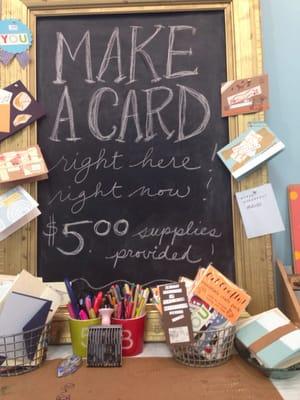 MAKE
A CARD
right here!
right now!
$5.00 supplies
provided!
YOU